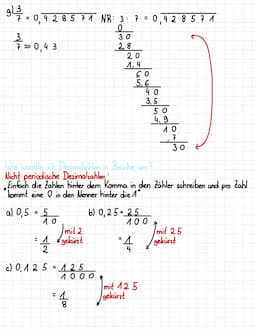 g) 3/7 = 0,428571 NR: 3 : 7 = 0,428571
0
30
3/7 ≈ 0,43
2 8
20
1 4
60
5 6
40
3 5
50
4 9
10
7
30
Wie wandle ich Dezimalzahlen in Brüche um?
Nicht periodische Dezimalzahlen:
Einfach die Zahlen hinter dem Komma in den Zähler schreiben und pro Zahl
kommt eine 0 in den Nenner hinter die 1
a) 0,5 = 5/10 b) 0,25 = 25/100
= 1/2 mit 2 gekürzt = 1/4 mit 25 gekürzt
c) 0,125 = 125/1000
= 1/8 mit 125 gekürzt